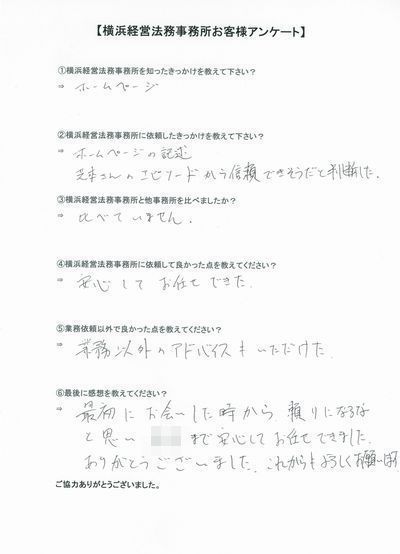 【横浜経営法務事務所お客様アンケート】
①横浜経営法務事務所を知ったきっかけを教えて下さい?
⇒ ホームページ
②横浜経営法務事務所に依頼したきっかけを教えて下さい?
⇒ ホームページの記述
さんのエピソードから信頼できそうだと判断した.
③横浜経営法務事務所と他事務所を比べましたか?
⇒ 比べていません.
④横浜経営法務事務所に依頼して良かった点を教えてください?
⇒ 安心してお任せできた.
⑤業務依頼以外で良かった点を教えてください?
⇒ 業務以外のアドバイスもいただけた.
⑥最後に感想を教えてください?
⇒ 最初にお会いした時から頼りになるな
と思い まで安心してお任せできました.
ありがとうございました. これからもよろしくお願いします
ご協力ありがとうございました。